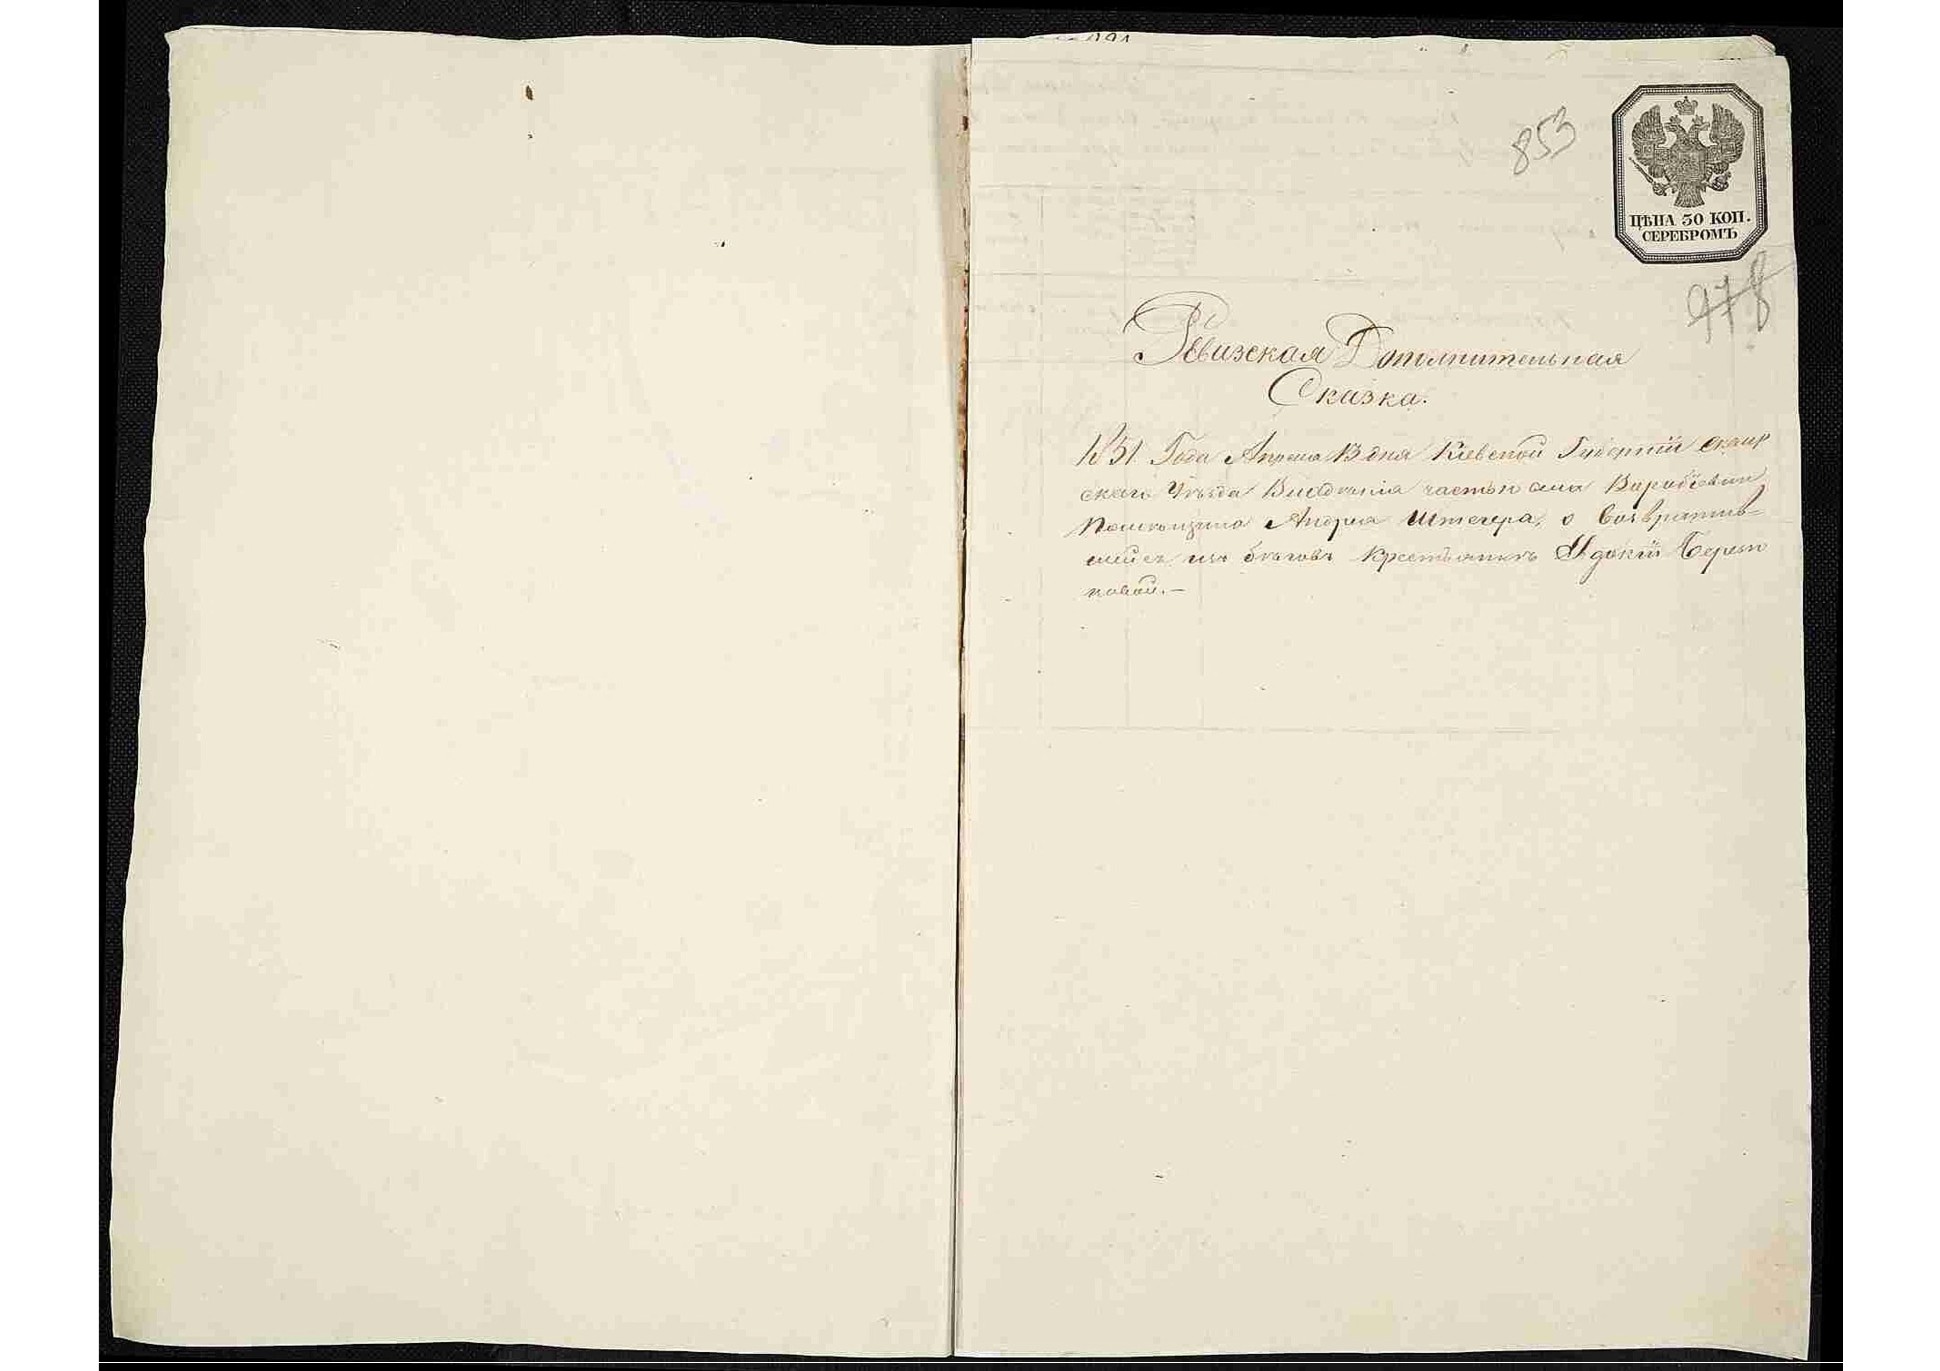 853
ЦѢНА 30 КОП.
СЕРЕБРОМЪ
978
Ревизская Дополнительная
Сказка.
1851 Года Апреля 13 дня Кіевской Губерніи Сквир
скаго Уѣзда Владѣнія частью села
Помѣщика Андрея Штегера, о возвратив-
шейся изъ бѣговъ Крестьянкѣ
новой.—